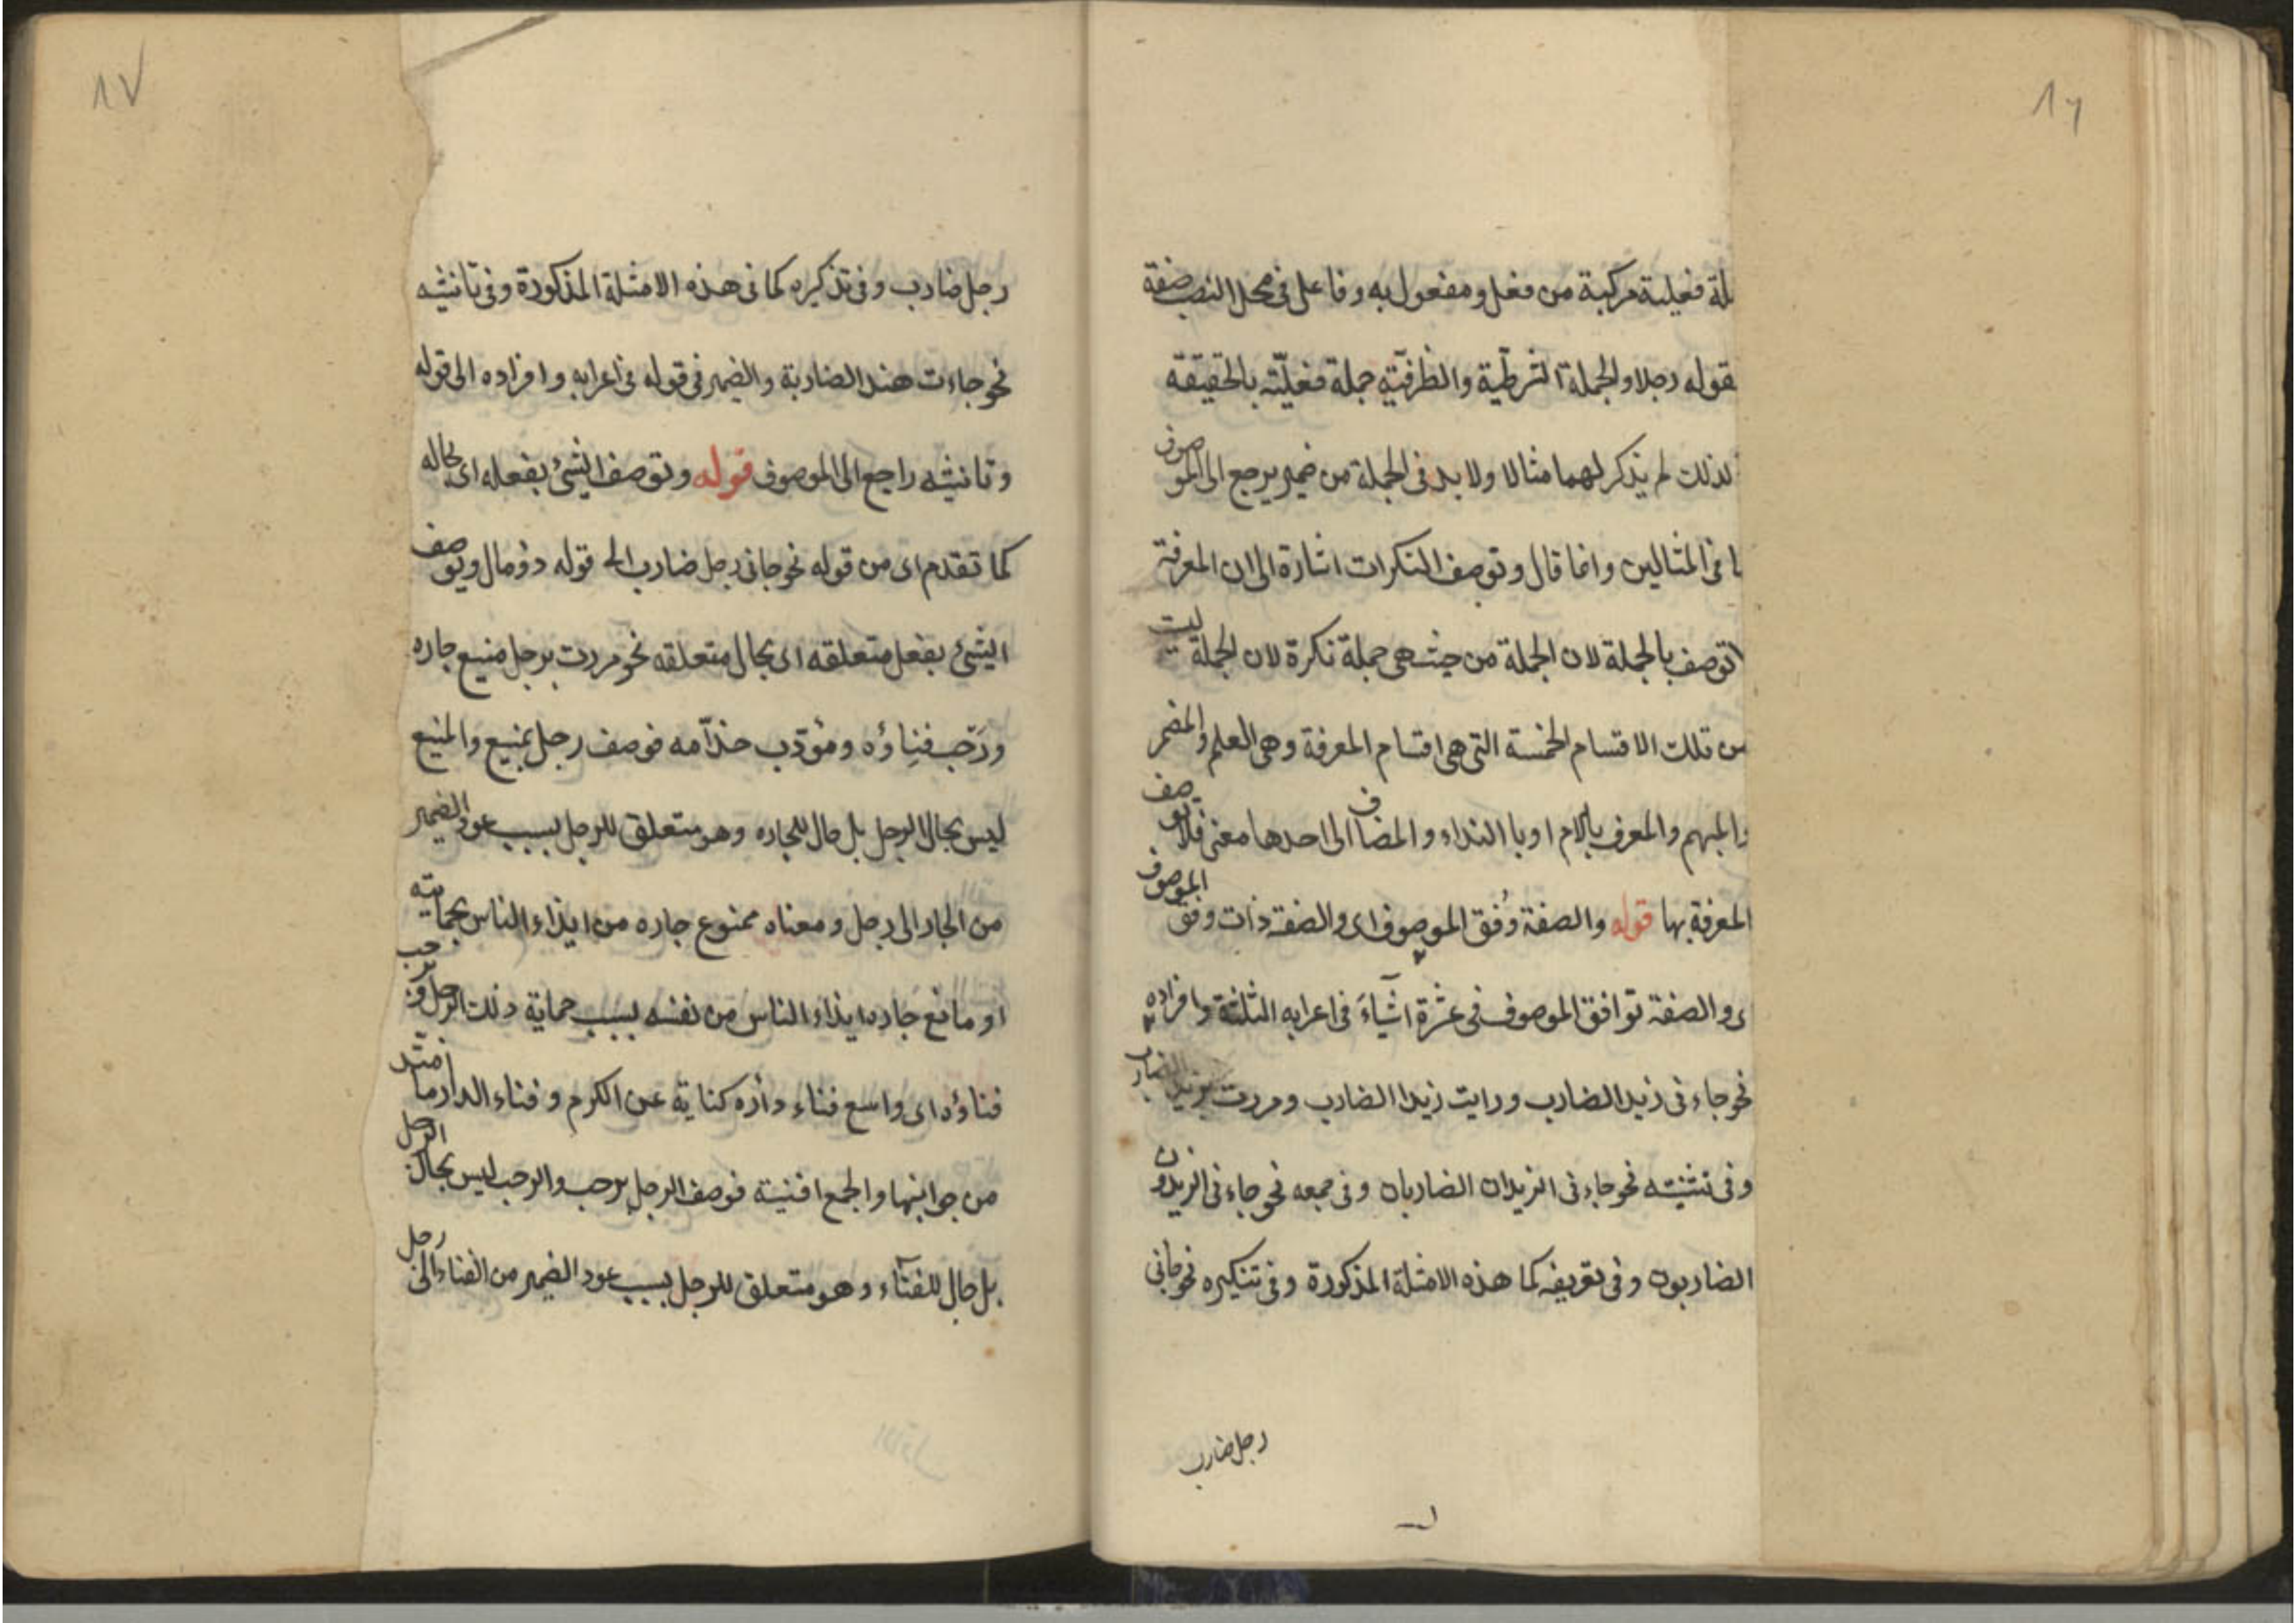 ١٦
لة فعلية مركبة من فعل ومفعول به وفاعل فى محل النصب صفة
لقوله رجلا والجملة الشرطية والظرفية جملة فعلية بالحقيقة
لذلك لم يذكر لهما مثالا ولا بد فى الجملة من ضمير يرجع الى الموصوف
ما فى المثالين وانما قال وتوصف النكرات اشارة الى ان المعرفة
لا توصف بالجملة لان الجملة من حيث هى جملة نكرة لان الجملة ليست
من تلك الاقسام الخمسة التى هى اقسام المعرفة وهى العلم والمضمر
والمبهم والمعرف باللام او با النداء والمضاف الى احدها معنى فلا توصف
المعرفة بها قوله والصفة وُفق الموصوف اى والصفة ذات وفق الموصوف
ى والصفة توافق الموصوف فى عشرة اشياءَ فى اعرابه الثلثة وافراده
نحو جاءنى زيد الضارب ورايت زيدا الضارب ومررت بزيد الضارب
وفى تثنيته نحو جاءنى الزيدان الضاربان وفى جمعه نحو جاءنى الزيدون
الضاربون وفى تعريفه كما هذه الامثلة المذكورة وفى تنكيره نحو جانى
رجل ضارب
١٧
رجل ضارب وفى تذكيره كما فى هذه الامثلة المذكورة وفى تانيثه
نحو جاءت هند الضاربة والضمير فى قوله فى اعرابه وافراده الى قوله
وتانيثه راجع الى الموصوف قوله وتوصف الشئ بفعله اى بحاله
كما تقدم اى من قوله نحو جانى رجل ضارب الى قوله ذو مال وتوصف
الشئ بفعل متعلقه اى بحال متعلقه نحو مررت برجل منيع جاره
ورَحب فنِاؤه ومؤدب خدّامه فوصف رجل بمنيع والمنيع
ليس بحال الرجل بل حال للجاره وهو متعلق للرجل بسبب عود الضمير
من الجار الى رجل ومعناه ممنوع جاره من ايذاء الناس بحمايته
او مانع جاره ايذاء الناس من نفسه بسبب حماية ذلك الرجل ورحب
فناؤه اى واسع فناء داره كناية عن الكرم وفناء الدار ما امتد
من جوانبها والجمع افنية فوصف الرجل برحب والرحب ليس بحال الرجل
بل حال للفنآء وهو متعلق للرجل بسبب عود الضمير من الفناء الى رجل